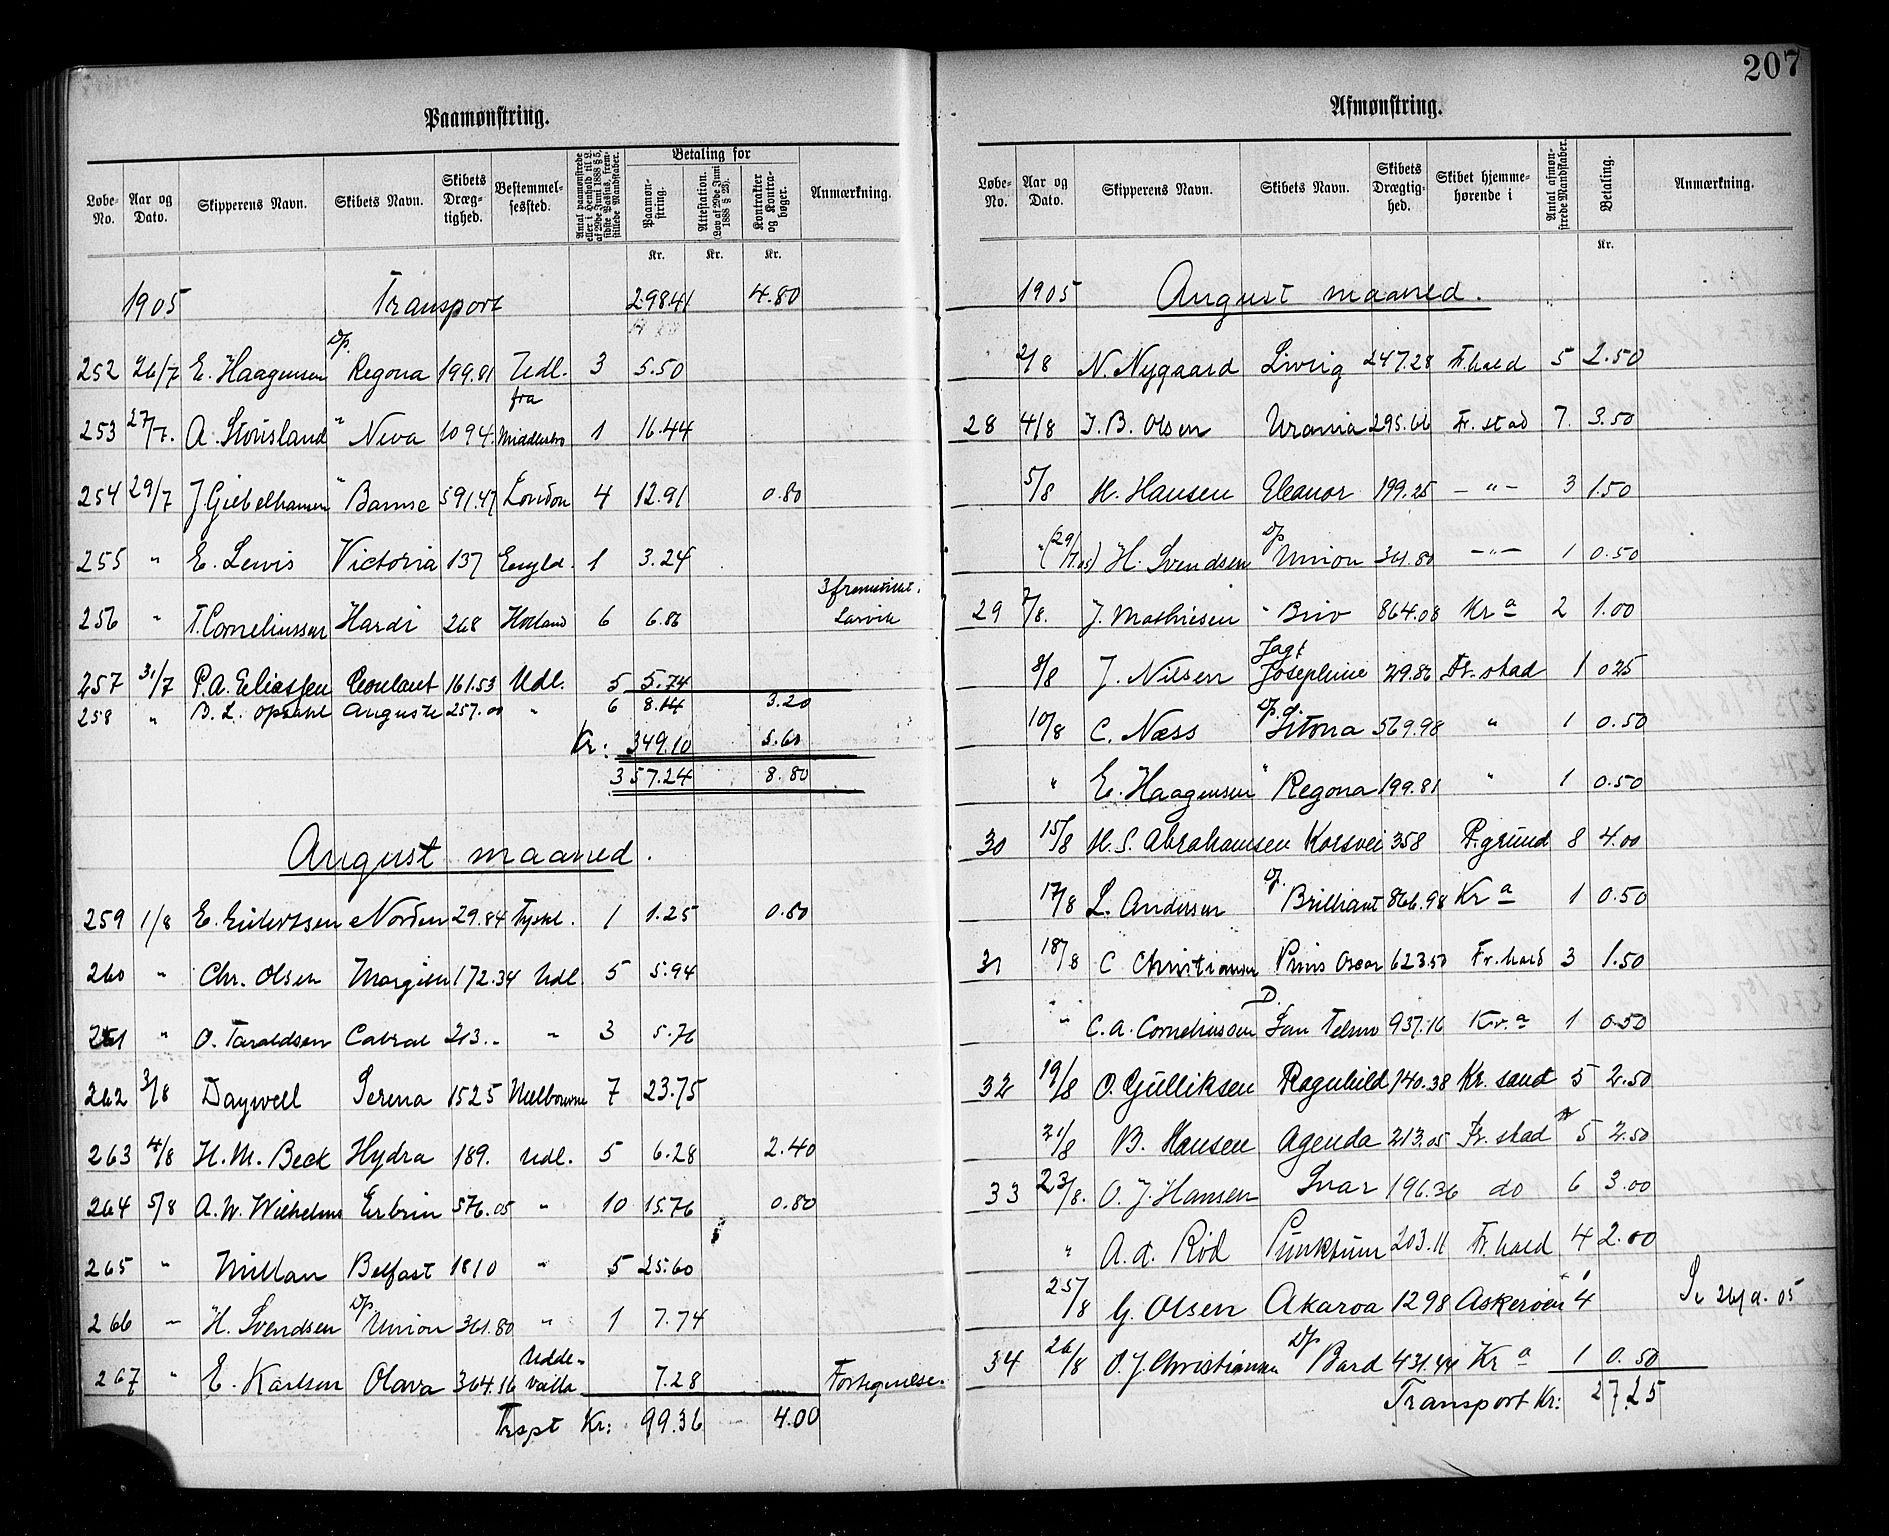 207
Paamønstring.
Løbe-No. | Aar og Dato. | Skipperens Navn. | Skibets Navn. | Skibets Dræg-tighed. | Bestemmel-sessted. | Antal paamønstrede eller i Henhold til L. af 29de Juni 1888 § 5, sidste Passus, frem-stillede Mandskaber. | Betaling for | Paamøn-string. | Attestation. (Lov af 29de Juni 1888 § 23). | Kontrakter og Kontra-bøger. | Anmærkning.
Kr. | Kr. | Kr.
1905 Transport 298.41 4.80
252 26/7 E. Haagensen Dp. Regona 199.81 Udl. 3 5.50
253 27/7. A. Stousland " Neva 1094. fra Middlesbro 1 16.44
254 29/7 J Giebelhausen " Bamse 591.47 London 4 12.91 0.80
255 " E. Lewis Victoria 137 Engld. 1 3.24
256 " T. Corneliussen Hardi 268 Holland 6 6.86 3 fremstillet i Larvik
257 31/7 P.A. Eliassen Coulant 161.53 Udl. 5 5.74
258 " B. L. Opdahl Auguste 257.00 " 6 8.14 3.20
Kr: 349.10 5.60
357.24 8.80
August maaned.
259 1/8 E. Evertssen Norden 29.84 Tyskl. 1 1.25 0.80
260 " Chr. Olsen 172.34 Udl. 5 5.94
261 " O. Taraldsen Cabral 213.. " 3 5.76
262 3/8 Daywell Serena 1525 Melbourne 7 23.75
263 4/8 H. M. Beck Hydra 189. Udl. 5 6.28 2.40
264 5/8 A. W. Wilhelms 576.05 " 10 15.76 0.80
265 " Millan Belfast 1810 " 5 25.60
266 " H. Svendsen Dp Union 361.80 " 1 7.74
267 " E. Karlson Olava 364.16 Udde-valla 7.28 Forhyrelse.
Trspt Kr: 99.36 4.00
Afmønstring.
Løbe-No. | Aar og Dato. | Skipperens Navn. | Skibets Navn. | Skibets Drægtig-hed. | Skibet hjemme-hørende i | Antal afmøn-strede Mandskaber. | Betaling. | Anmærkning.
Kr.
1905 August maaned.
2/8 N. Nygaard Livlig 247.28 F.hald 5 2.50
28 4/8 J. B. Olsen Urania 295.66 Fr. stad 7. 3.50
5/8 H. Hansen Eleanor 199.25 — " — 3 1.50
" (29/7.05) H. Svendsen Dp Union 361.80 — " — 1 0.50
29 7/8. J. Mathisen " Brio 864.08 Kr a 2 1.00
8/8 J. Nilsen Jagt Josephine 29.86 Fr. stad 1 0 25
10/8 C. Næss Dp. Sitona 569.98 " 1 0.50
" E. Haagensen " Regona 199.81 " 1 0.50
30 15/8 H. S. Abrahamsen Korsvei 358 P.grund 8 4.00
17/8 L. Andersen Dp. Brilliant 866.98 Kr a 1 0.50
31 18/8 C Christiansen Prins Oscar 623.50 Fr. hald 3 1.50
" C. A. Corneliussen D. San Telmo 937.16 Kr. a 1 0.50
32 19/8 O. Gulliksen Ragnhild 740.38 Kr. sand 5 2.50
21/8 B. Hansen Agenda 213.05 Fr. stad 5 2.50
33 23/8. O. J. Hansen Snar 196.36 do 6 3.00
" A. A. Röd Punktum 203.11 Fr. hald 4 2.00
25/8 G. Olsen Akaroa 1298 Askerøen 4
34 26/8 O. J. Christiansen Dp Bard 431.44 Kr a 1 0.50
Transport Kr: 27.25